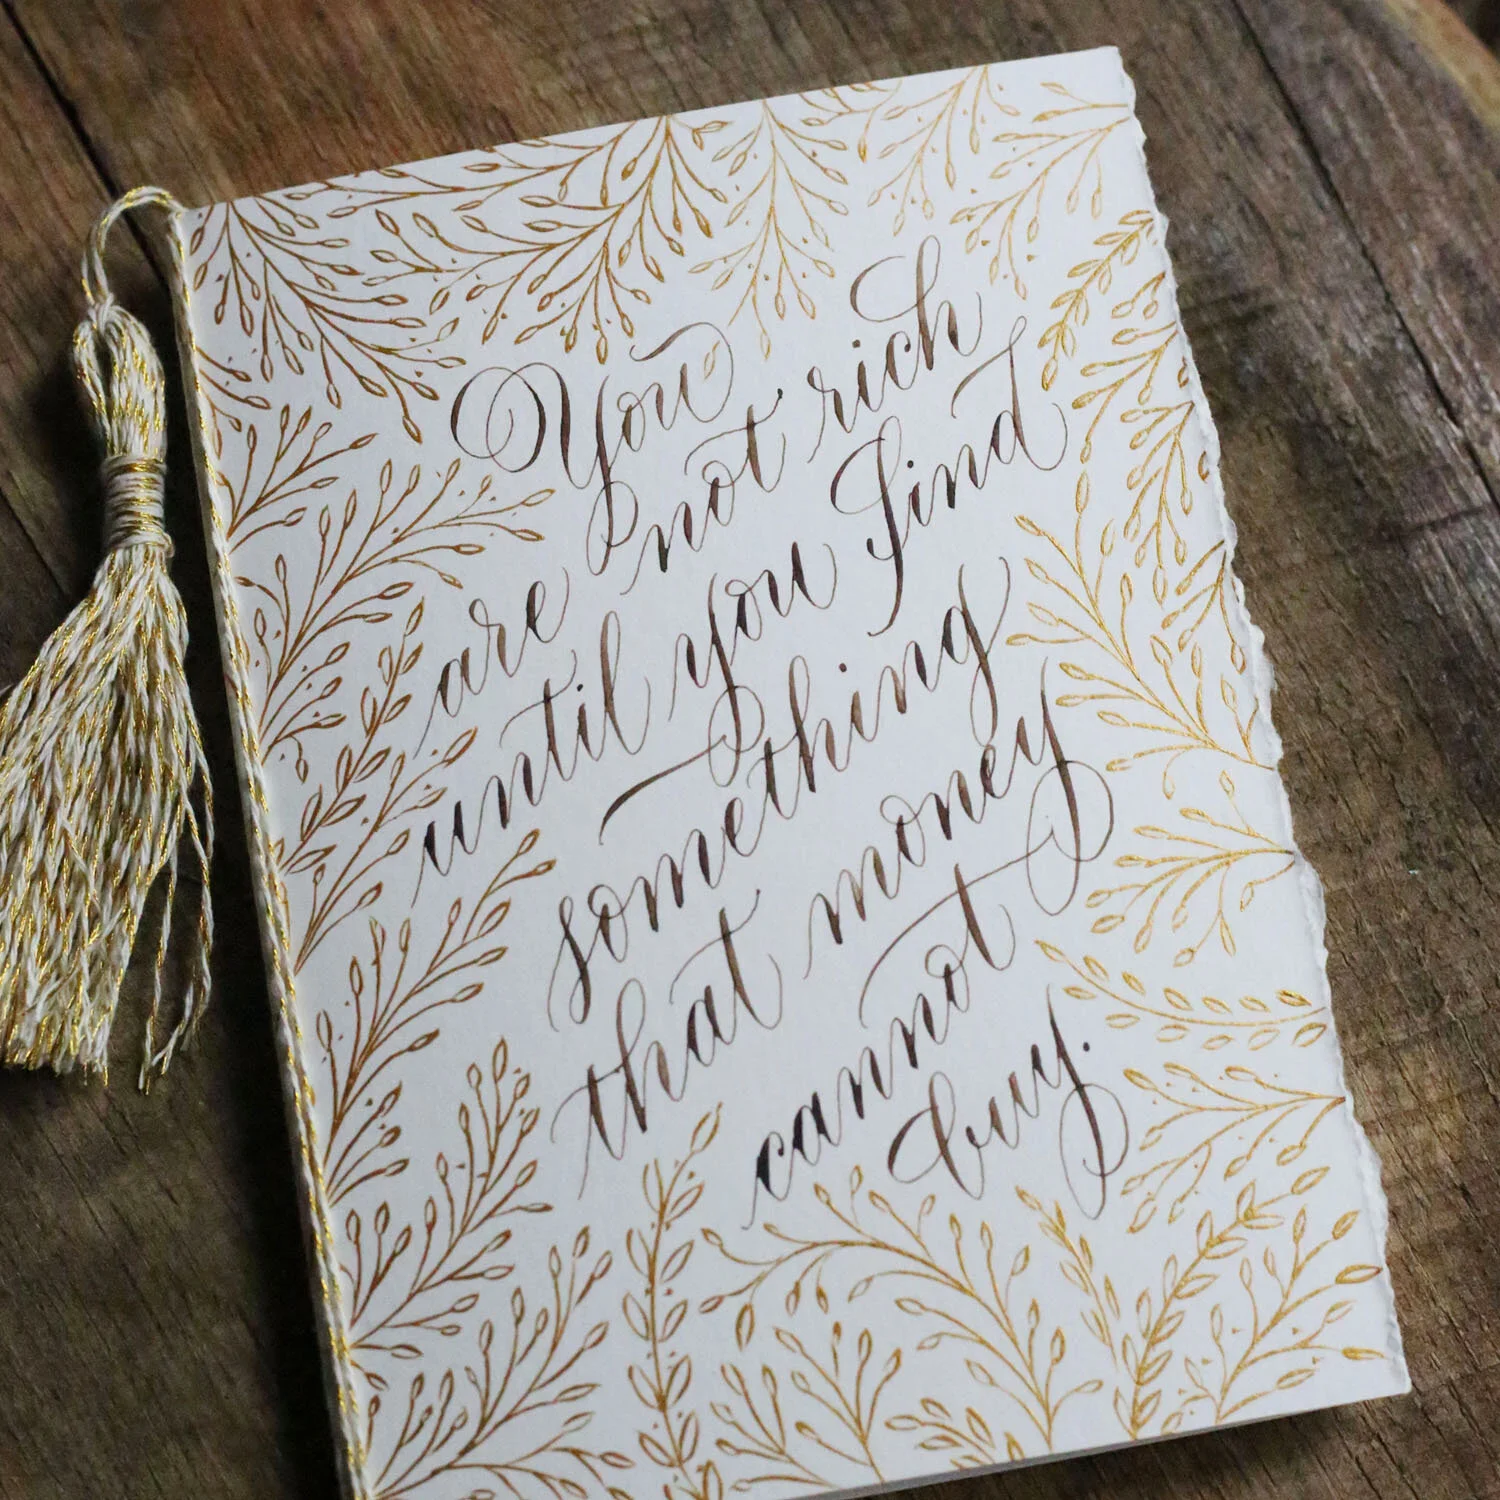 You
are not rich
until you find
something
that money
cannot
buy.